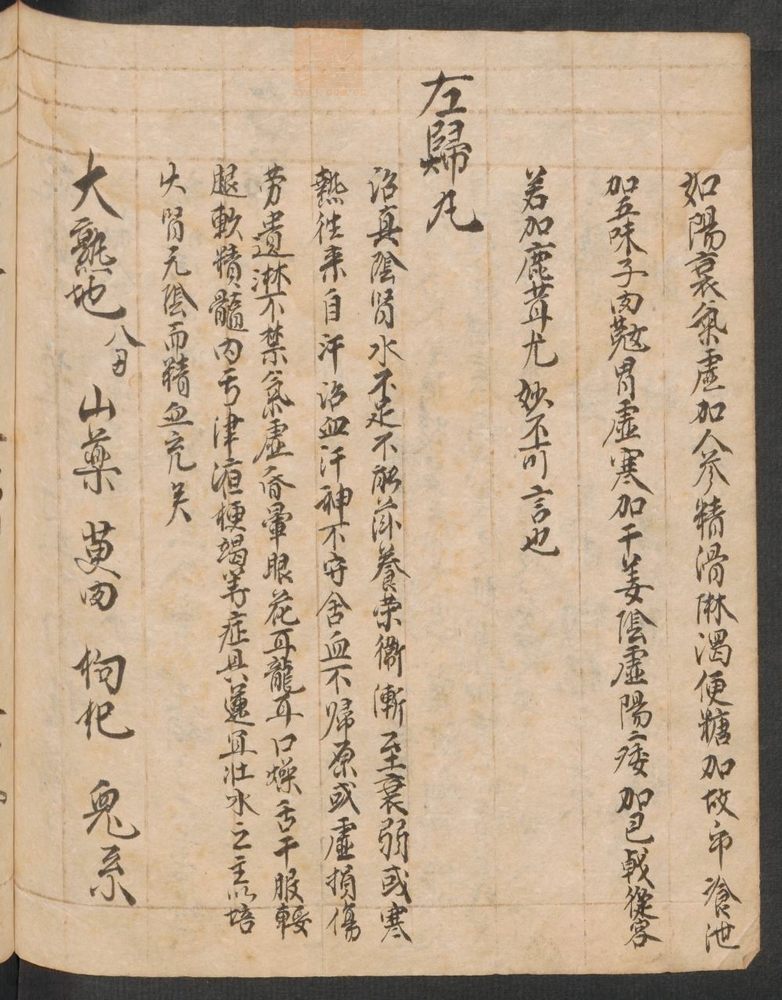 如陽衰氣虛加人參精滑淋濁便糖加故帋飱泄
加五味子肉蔻胃虛寒加干姜陰虛陽痿加巴戟從容
若加鹿茸尤妙不可言也
左歸丸
治真陰腎水不足不能滋養荣衛漸至衰弱或寒
熱往来自汗治血汗神不守舍血不歸原或虛損傷
劳遺淋不禁氣虛昏暈眼花耳龍耳口燥舌干腰
腿軟精髓內亏津液梗竭等症具速宜壯水之主以培
大腎元陰而精血充矣
大熟地八日 山藥 萸肉 枸杞 兔系